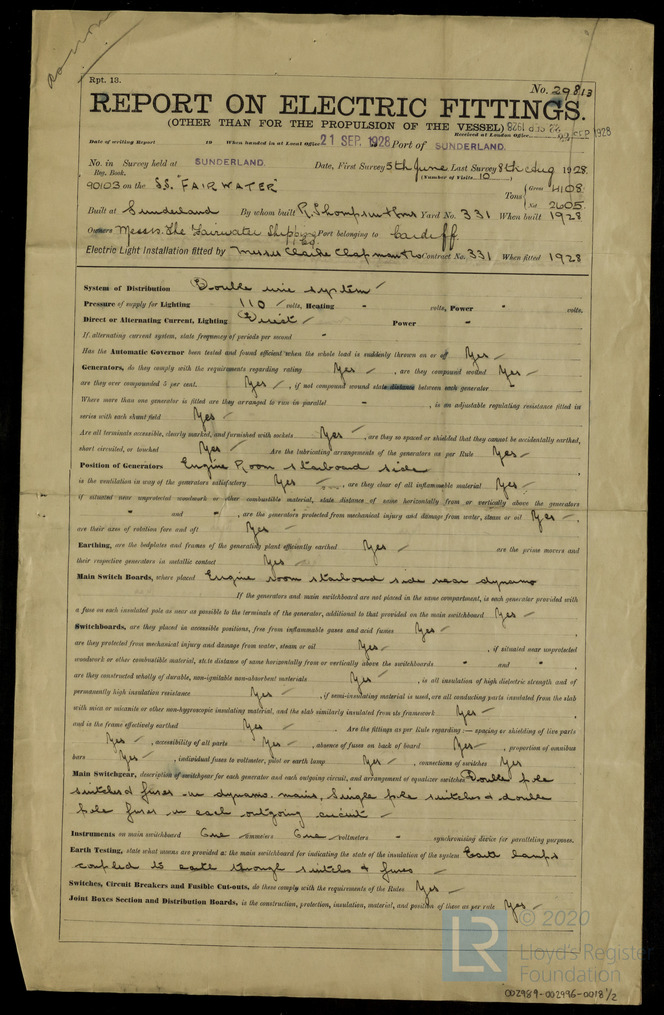 Rpt. 13.
No. 29813
REPORT ON ELECTRIC FITTINGS.
(OTHER THAN FOR THE PROPULSION OF THE VESSEL)
Received at London Office SEP 1928
Date of writing Report 19 When handed in at Local Office 21 SEP. 1928 Port of SUNDERLAND.
No. in Survey held at SUNDERLAND Date, First Survey 5th June Last Survey 8th Aug 1928.
Reg. Book. (Number of Visits 10)
90103 on the SS. "FAIRWATER" Tons { Gross 4108
Net 2605
Built at Sunderland By whom built R. Thompson & Sons Yard No. 331 When built 1928
Owners Messrs. The Fairwater Shipping Co Ltd. Port belonging to Cardiff.
Electric Light Installation fitted by Messrs Clarke Chapman & Co Contract No. 331 When fitted 1928
System of Distribution Double wire system
Pressure of supply for Lighting 110 volts, Heating - volts, Power - volts.
Direct or Alternating Current, Lighting Direct Power -
If alternating current system, state frequency of periods per second -
Has the Automatic Governor been tested and found efficient when the whole load is suddenly thrown on or off Yes
Generators, do they comply with the requirements regarding rating Yes, are they compound wound Yes
are they over compounded 5 per cent. Yes, if not compound wound state distance between each generator -
Where more than one generator is fitted are they arranged to run in parallel -, is an adjustable regulating resistance fitted in
series with each shunt field Yes
Are all terminals accessible, clearly marked, and furnished with sockets Yes, are they so spaced or shielded that they cannot be accidentally earthed,
short circuited, or touched Yes Are the lubricating arrangements of the generators as per Rule Yes
Position of Generators Engine Room starboard side
is the ventilation in way of the generators satisfactory Yes, are they clear of all inflammable material Yes
if situated near unprotected woodwork or other combustible material, state distance of same horizontally from or vertically above the generators
" and ", are the generators protected from mechanical injury and damage from water, steam or oil Yes,
are their axes of rotation fore and aft Yes
Earthing, are the bedplates and frames of the generating plant efficiently earthed Yes are the prime movers and
their respective generators in metallic contact Yes
Main Switch Boards, where placed Engine room starboard side near dynamo
If the generators and main switchboard are not placed in the same compartment, is each generator provided with
a fuse on each insulated pole as near as possible to the terminals of the generator, additional to that provided on the main switchboard Yes
Switchboards, are they placed in accessible positions, free from inflammable gases and acid fumes Yes,
are they protected from mechanical injury and damage from water, steam or oil Yes, if situated near unprotected
woodwork or other combustible material, state distance of same horizontally from or vertically above the switchboards " and ",
are they constructed wholly of durable, non-ignitable non-absorbent materials Yes, is all insulation of high dielectric strength and of
permanently high insulation resistance Yes, if semi-insulating material is used, are all conducting parts insulated from the slab
with mica or micanite or other non-hygroscopic insulating material, and the slab similarly insulated from its framework Yes
and is the frame effectively earthed Yes Are the fittings as per Rule regarding:— spacing or shielding of live parts
Yes, accessibility of all parts Yes, absence of fuses on back of board Yes, proportion of omnibus
bars Yes, individual fuses to voltmeter, pilot or earth lamp Yes, connections of switches Yes
Main Switchgear, description of switchgear for each generator and each outgoing circuit, and arrangement of equalizer switches Double pole
switches & fuses in dynamo mains, Single pole switches & double
pole fuses in each outgoing circuit
Instruments on main switchboard One ammeters One voltmeters - synchronising device for paralleling purposes.
Earth Testing, state what means are provided at the main switchboard for indicating the state of the insulation of the system Earth lamps
coupled to earth through switches & fuses
Switches, Circuit Breakers and Fusible Cut-outs, do these comply with the requirements of the Rules Yes
Joint Boxes Section and Distribution Boards, is the construction, protection, insulation, material, and position of these as per rule Yes
LR © 2020
Lloyd's Register
Foundation
002989-002996-0018 1/2